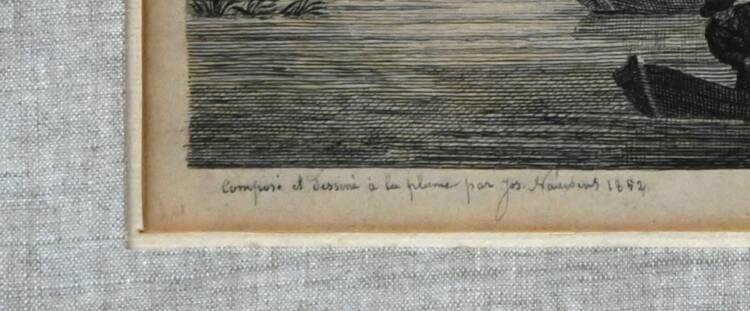 Composé et dessiné à la plume par Jos. 1882